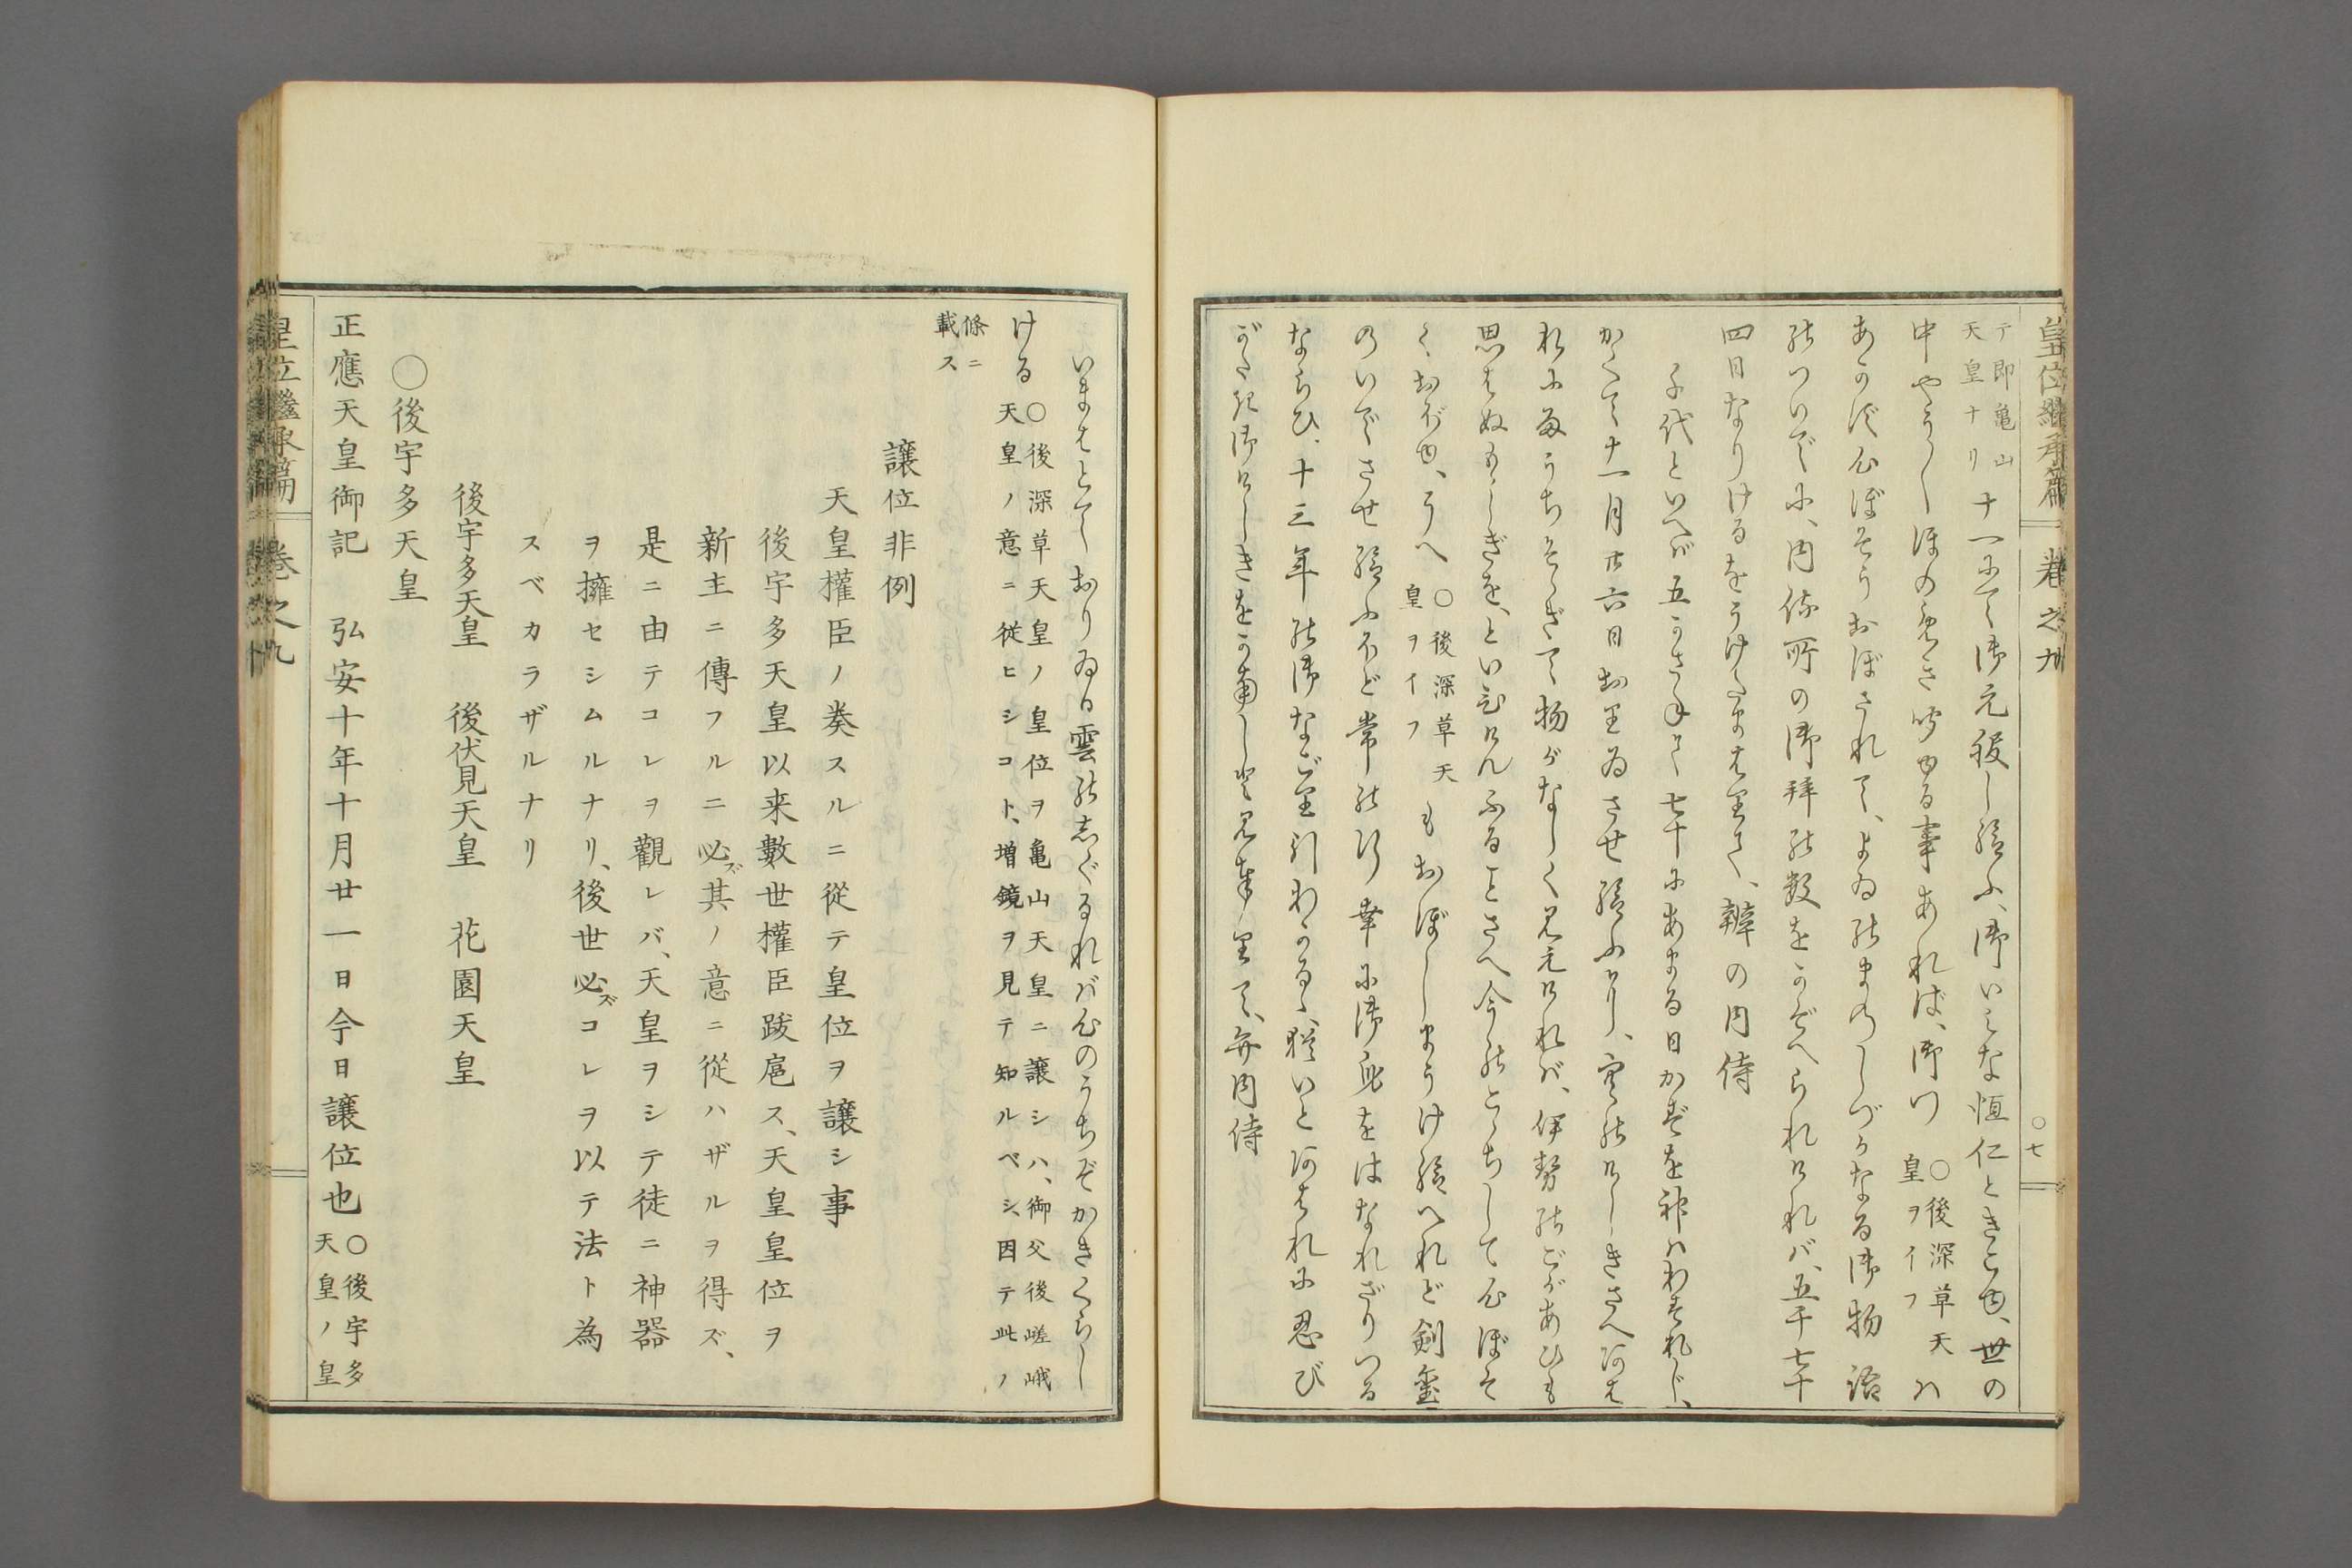 皇位繼承篇 卷之九 ○七
テ即亀山
天皇ナリ
十一にて御元服し給ふ、御いみな恒仁ときこゆ、世の
中やう〳〵ほのめき聞ゆる事あれば、御門
○後深草天
皇ヲイフ
は
あかず心ぼそうおぼされて、よゐのまのしづかなる御物語
のついでに、内侍所の御拜の數をかぞへられければ、五千七十
四日なりけるをうけたまはりて、辨の内侍
千代といへば五つかさねて七十にあまる日かずを神はわすれじ、
かくて十一月廿六日おりゐさせ給ふ
きさへあは
れにうちそゝぎて物がなしく見えければ、伊勢のごがあひも
思はぬもゝしぎを、といひけんふることさへ今のこゝちして心ぼそ
く、おぼゆ、うへ
○後深草天
皇ヲイフ
もおぼしまうけ給へれど劍璽
のいでさせ給ふほど常の行幸に御身をはなれざりつる
ならひ、十三年の御なごり引わかるゝ、猶いとあはれに忍び
がたき御けしきを
見奉りて、弁内侍
いまはとておりゐる雲のしぐるれば心のうちぞかきくらし
ける
○後深草天皇ノ皇位ヲ亀山天皇ニ讓シハ、御父後嵯峨
天皇ノ意ニ從ヒシコト、増鏡ヲ見テ知ルベシ、因テ此ノ
條ニ
載ス
讓位非例
天皇權臣ノ奏スルニ從テ皇位ヲ讓シ事
後宇多天皇以来數世權臣跋扈ス、天皇皇位ヲ
新主ニ傳フルニ必ズ其ノ意ニ從ハザルヲ得ズ、
是ニ由テコレヲ觀レバ、天皇ヲシテ徒ニ神器
ヲ擁セシムルナリ、後世必ズコレヲ以テ法ト為
スベカラザルナリ
後宇多天皇 後伏見天皇 花園天皇
○後宇多天皇
正應天皇御記 弘安十年十月廿一日今日讓位也
○後宇多
天皇ノ皇
皇位繼承篇 卷之九